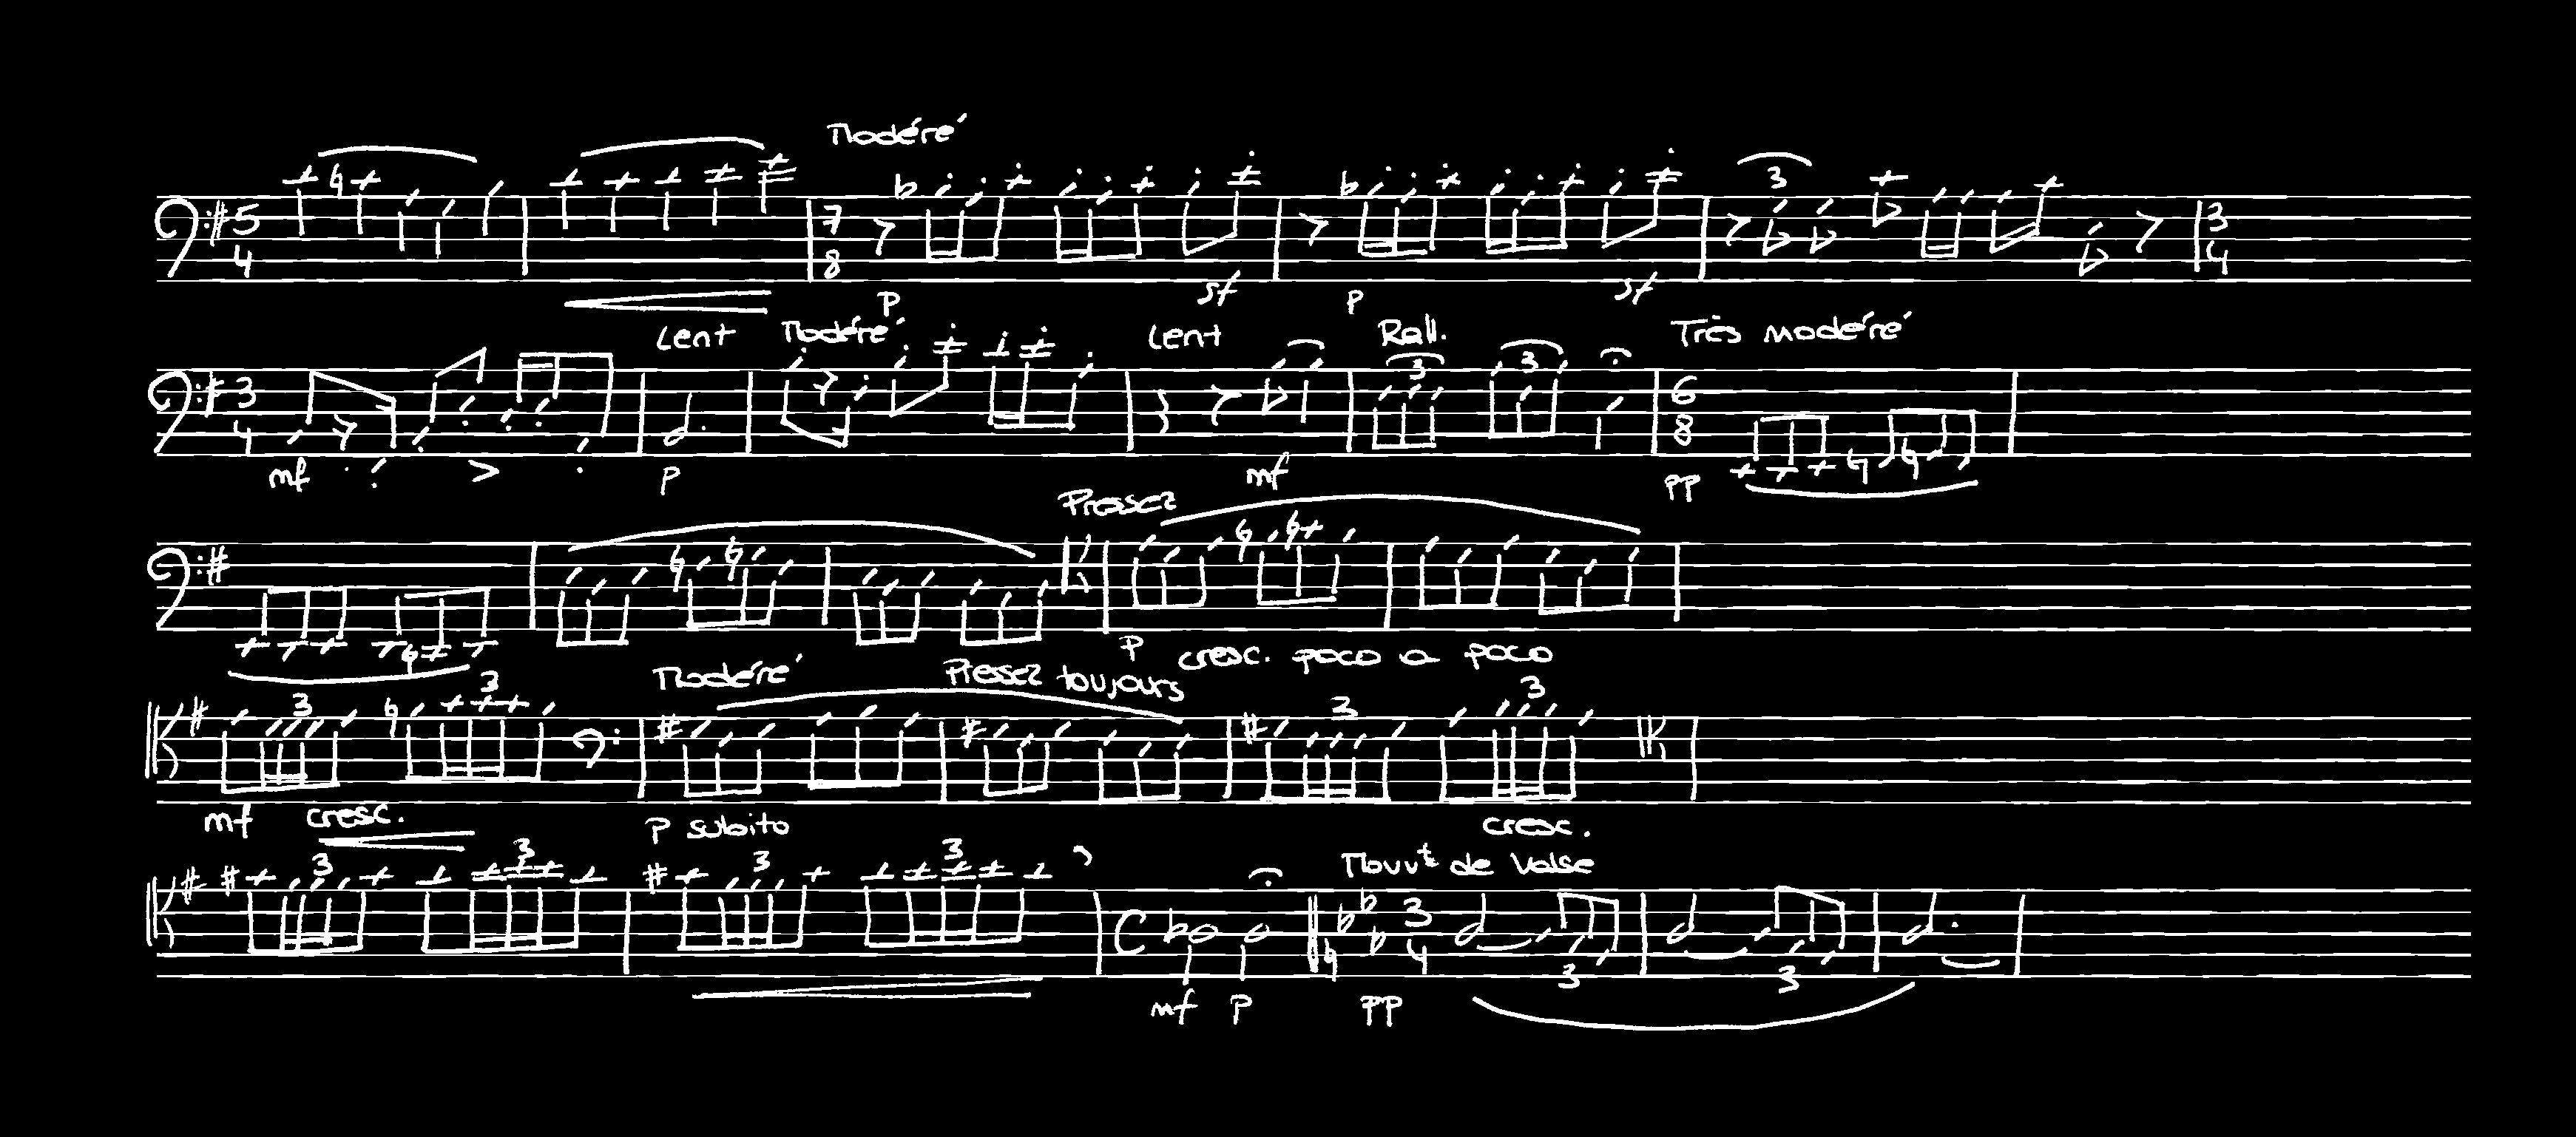 Modéré
5 4 7 8 3 3 4
p sf p sf
Lent Modéré Lent Rall. Très modéré
3 4 3 3 6 8
mf p mf pp
Pressez
p cresc. poco a poco
Modéré Pressez toujours
3 3 3 3
mf cresc. p subito cresc.
Mouvt de Valse
3 3 3 3 C 3 4 3 3
mf p pp